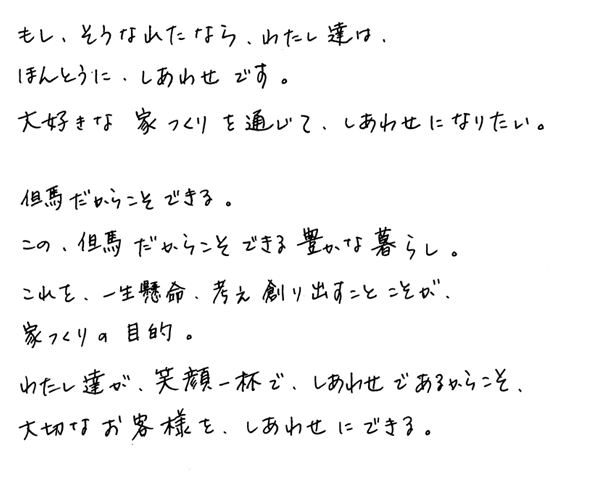 もし、そうなれたなら、わたし達は、
ほんとうに、しあわせです。
大好きな 家つくりを通じて、しあわせになりたい。
但馬だからこそできる。
この、但馬だからこそできる豊かな暮らし。
これを、一生懸命、考え創り出すことこそが、
家つくりの目的。
わたし達が、笑顔一杯で、しあわせであるからこそ、
大切なお客様を、しあわせにできる。